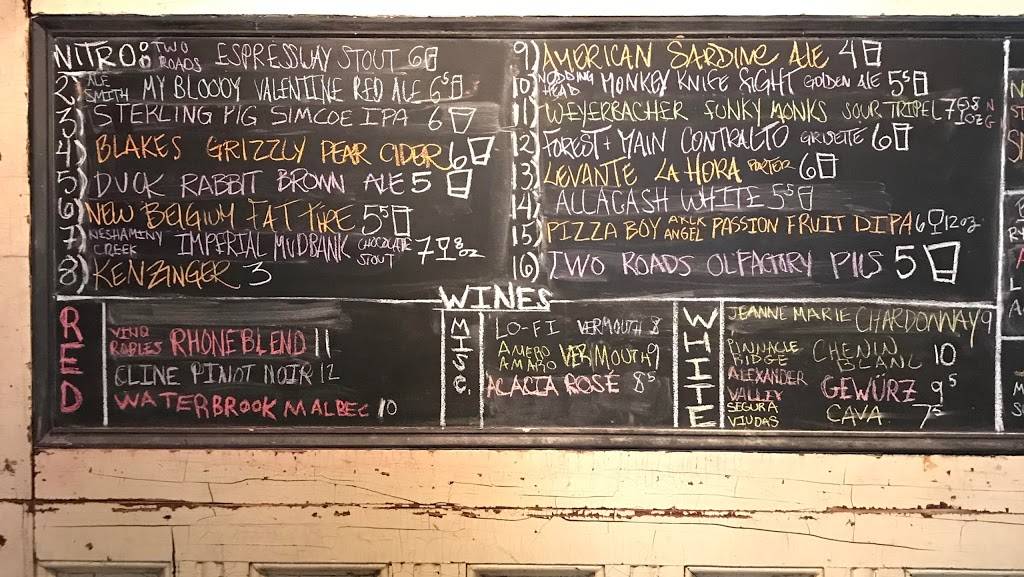 NITRO: TWO ROADS ESPRESSWAY STOUT 6
2) ALE SMITH MY BLOODY VALENTINE RED ALE 6⁵
3) STERLING PIG SIMCOE IPA 6
4) BLAKES GRIZZLY PEAR CIDER 6
5) DUCK RABBIT BROWN ALE 5
6) NEW BELGIUM FAT TIRE 5⁵
7) NESHAMINY CREEK IMPERIAL MUDBANK CHOCOLATE STOUT 7 8 OZ
8) KENZINGER 3
9) AMERICAN SARDINE ALE 4
10) NODDING HEAD MONKEY KNIFE FIGHT GOLDEN ALE 5⁵
11) WEYERBACHER FUNKY MONKS SOUR TRIPEL 7
12) FOREST + MAIN CONTRALTO GRISETTE 6
13) LEVANTE LA HORA PORTER 6
14) ALLAGASH WHITE 5⁵
15) PIZZA BOY ANGEL PASSION FRUIT DIPA 6 12oz
16) TWO ROADS OLFACTORY PILS 5
WINES
RED
VINO ROBLES RHONE BLEND 11
CLINE PINOT NOIR 12
WATERBROOK MALBEC 10
MISC.
LO-FI VERMOUTH 8
AMERO AMARO VERMOUTH 9
ACACIA ROSÉ 8⁵
WHITE
JEANNE MARIE CHARDONNAY 9
PINNACLE RIDGE CHENIN BLANC 10
ALEXANDER VALLEY GEWÜRZ 9⁵
SEGURA VIUDAS CAVA 7⁵